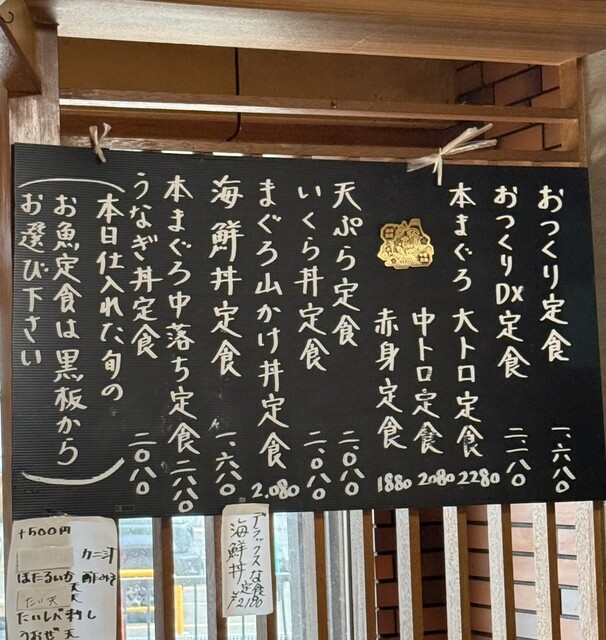 おつくり定食 一、六八〇
おつくりDX定食 二、一八〇
本まぐろ 大トロ定食 2280
中トロ定食 2080
赤身定食 1880
天ぷら定食 二、〇八〇
いくら丼定食 二、〇八〇
まぐろ山かけ丼定食 2,080
海鮮丼定食 一、六八〇
本まぐろ中落ち定食
うなぎ丼定食 二〇八〇
(本日仕入れた旬の
お魚定食は黒板から
お選び下さい)
デラックスな
海鮮丼定食
¥2180
+500円
ほたるいか 酢みそ
天